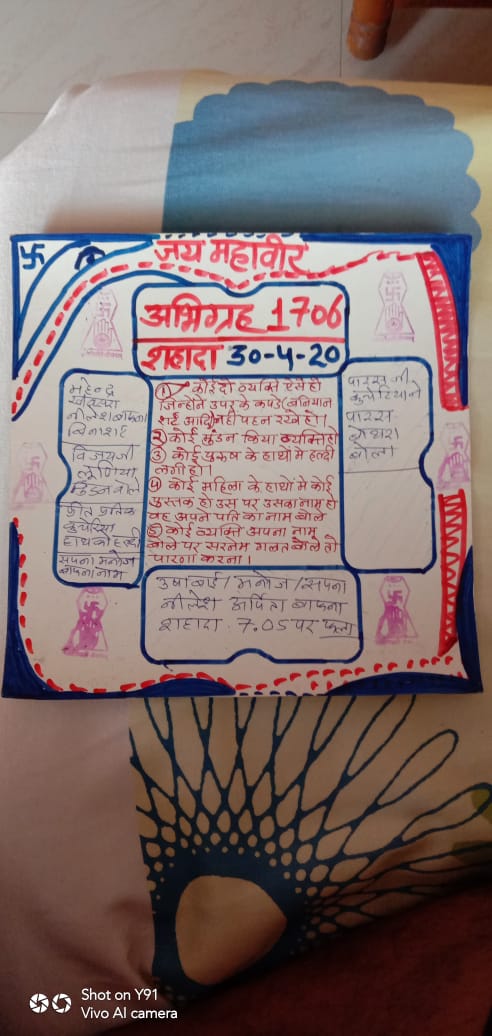 जय महावीर
अभिग्रह 1706
शहादा 30-4-20
① कोई दो व्यक्ति ऐसे हो
जिन्होंने उपर के कपडे बनियान
शर्ट आदि नही पहन रखे हो।
② कोई मुंडन किया व्यक्ति हो
③ कोई पुरुष के हाथो मे हल्दी
लगी हो।
④ कोई महिला के हाथो मे कोई
पुस्तक हो उस पर उसका नाम हो
वह अपने पति का नाम बोले
⑤ कोई व्यक्ति अपना नाम
बोले पर सरनेम गलत बोले तो
पारणा करना।
महेन्द्र
नीलेश बाफना
बिना शर्ट
विजयजी
लूणिया
मुंडन बोले
प्रतिक
हाथ को हल्दी
सपना मनोज
बाफना नाम
पारस जी
पारस
बोथरा
बोला
उषाबाई / मनोज / सपना
नीलेश अर्पिता बाफना
शहादा 7.05 पर फला
Shot on Y91
Vivo AI camera